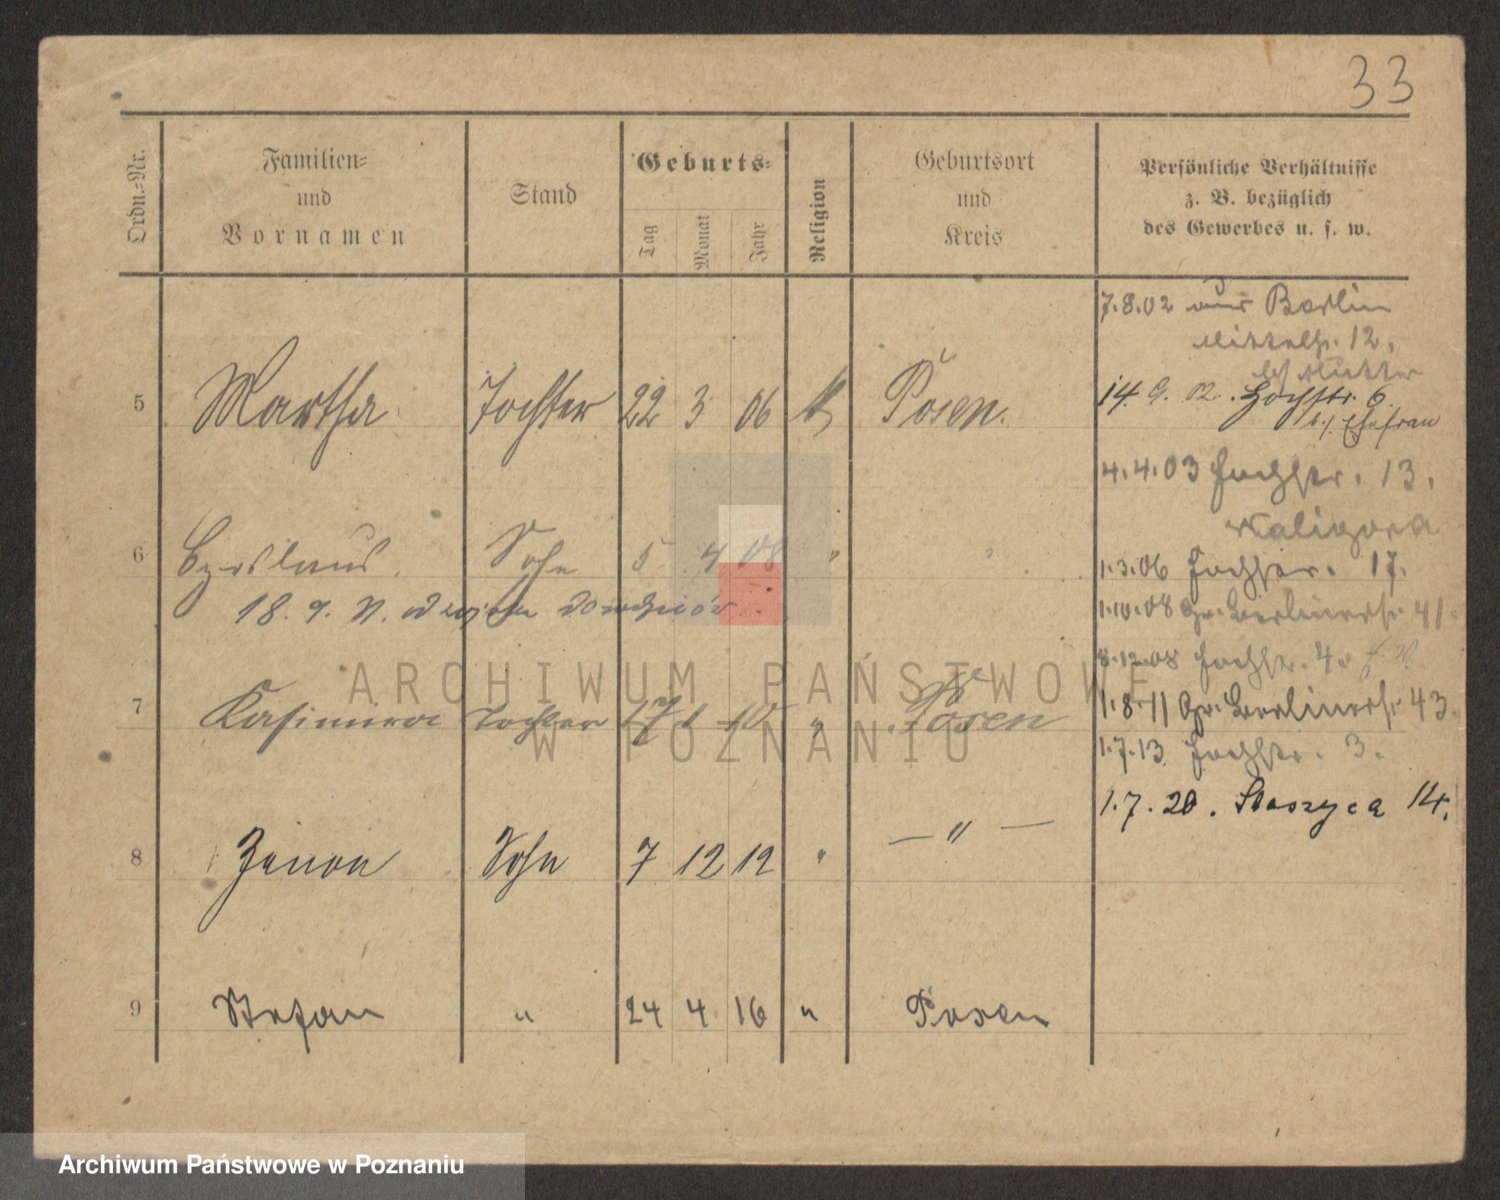 33
Ordn.-Nr.
Familien-
und
Vornamen
Stand
Geburts-
Tag
Monat
Jahr
Religion
Geburtsort
und
Kreis
Persönliche Verhältnisse
z. B. bezüglich
des Gewerbes u. s. w.
7.8.02 aus Berlin
Mittelstr. 12,
bei Mutter
5 Martha Tochter 22 3 06 k Posen.
14. 9. 02. Hochstr. 6
b./. Ehefrau
4.4.03 Hochstr. 13.
Kaligora
6 Czeslaus. Sohn 5 4 08 "
18. 9.
1.3.06 17.
1.10.08 Gr. Berlinerstr. 41
8.12.08
7 Kasimira Tochter 17 1 10 " Posen
1.8.11 Gr. Berlinerstr. 43.
1.7.13 3.
1.7.20. Staszyca 14.
8 Zenon Sohn 7 12 12 " — " —
9 Stefan " 24 4 16 " Posen
ARCHIWUM PAŃSTWOWE
W POZNANIU
Archiwum Państwowe w Poznaniu